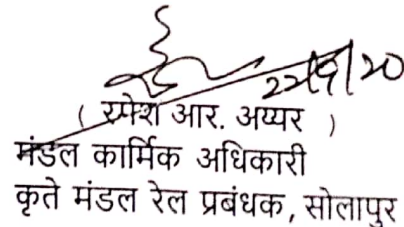 22/9/20
( रमेश आर. अय्यर )
मंडल कार्मिक अधिकारी
कृते मंडल रेल प्रबंधक, सोलापुर